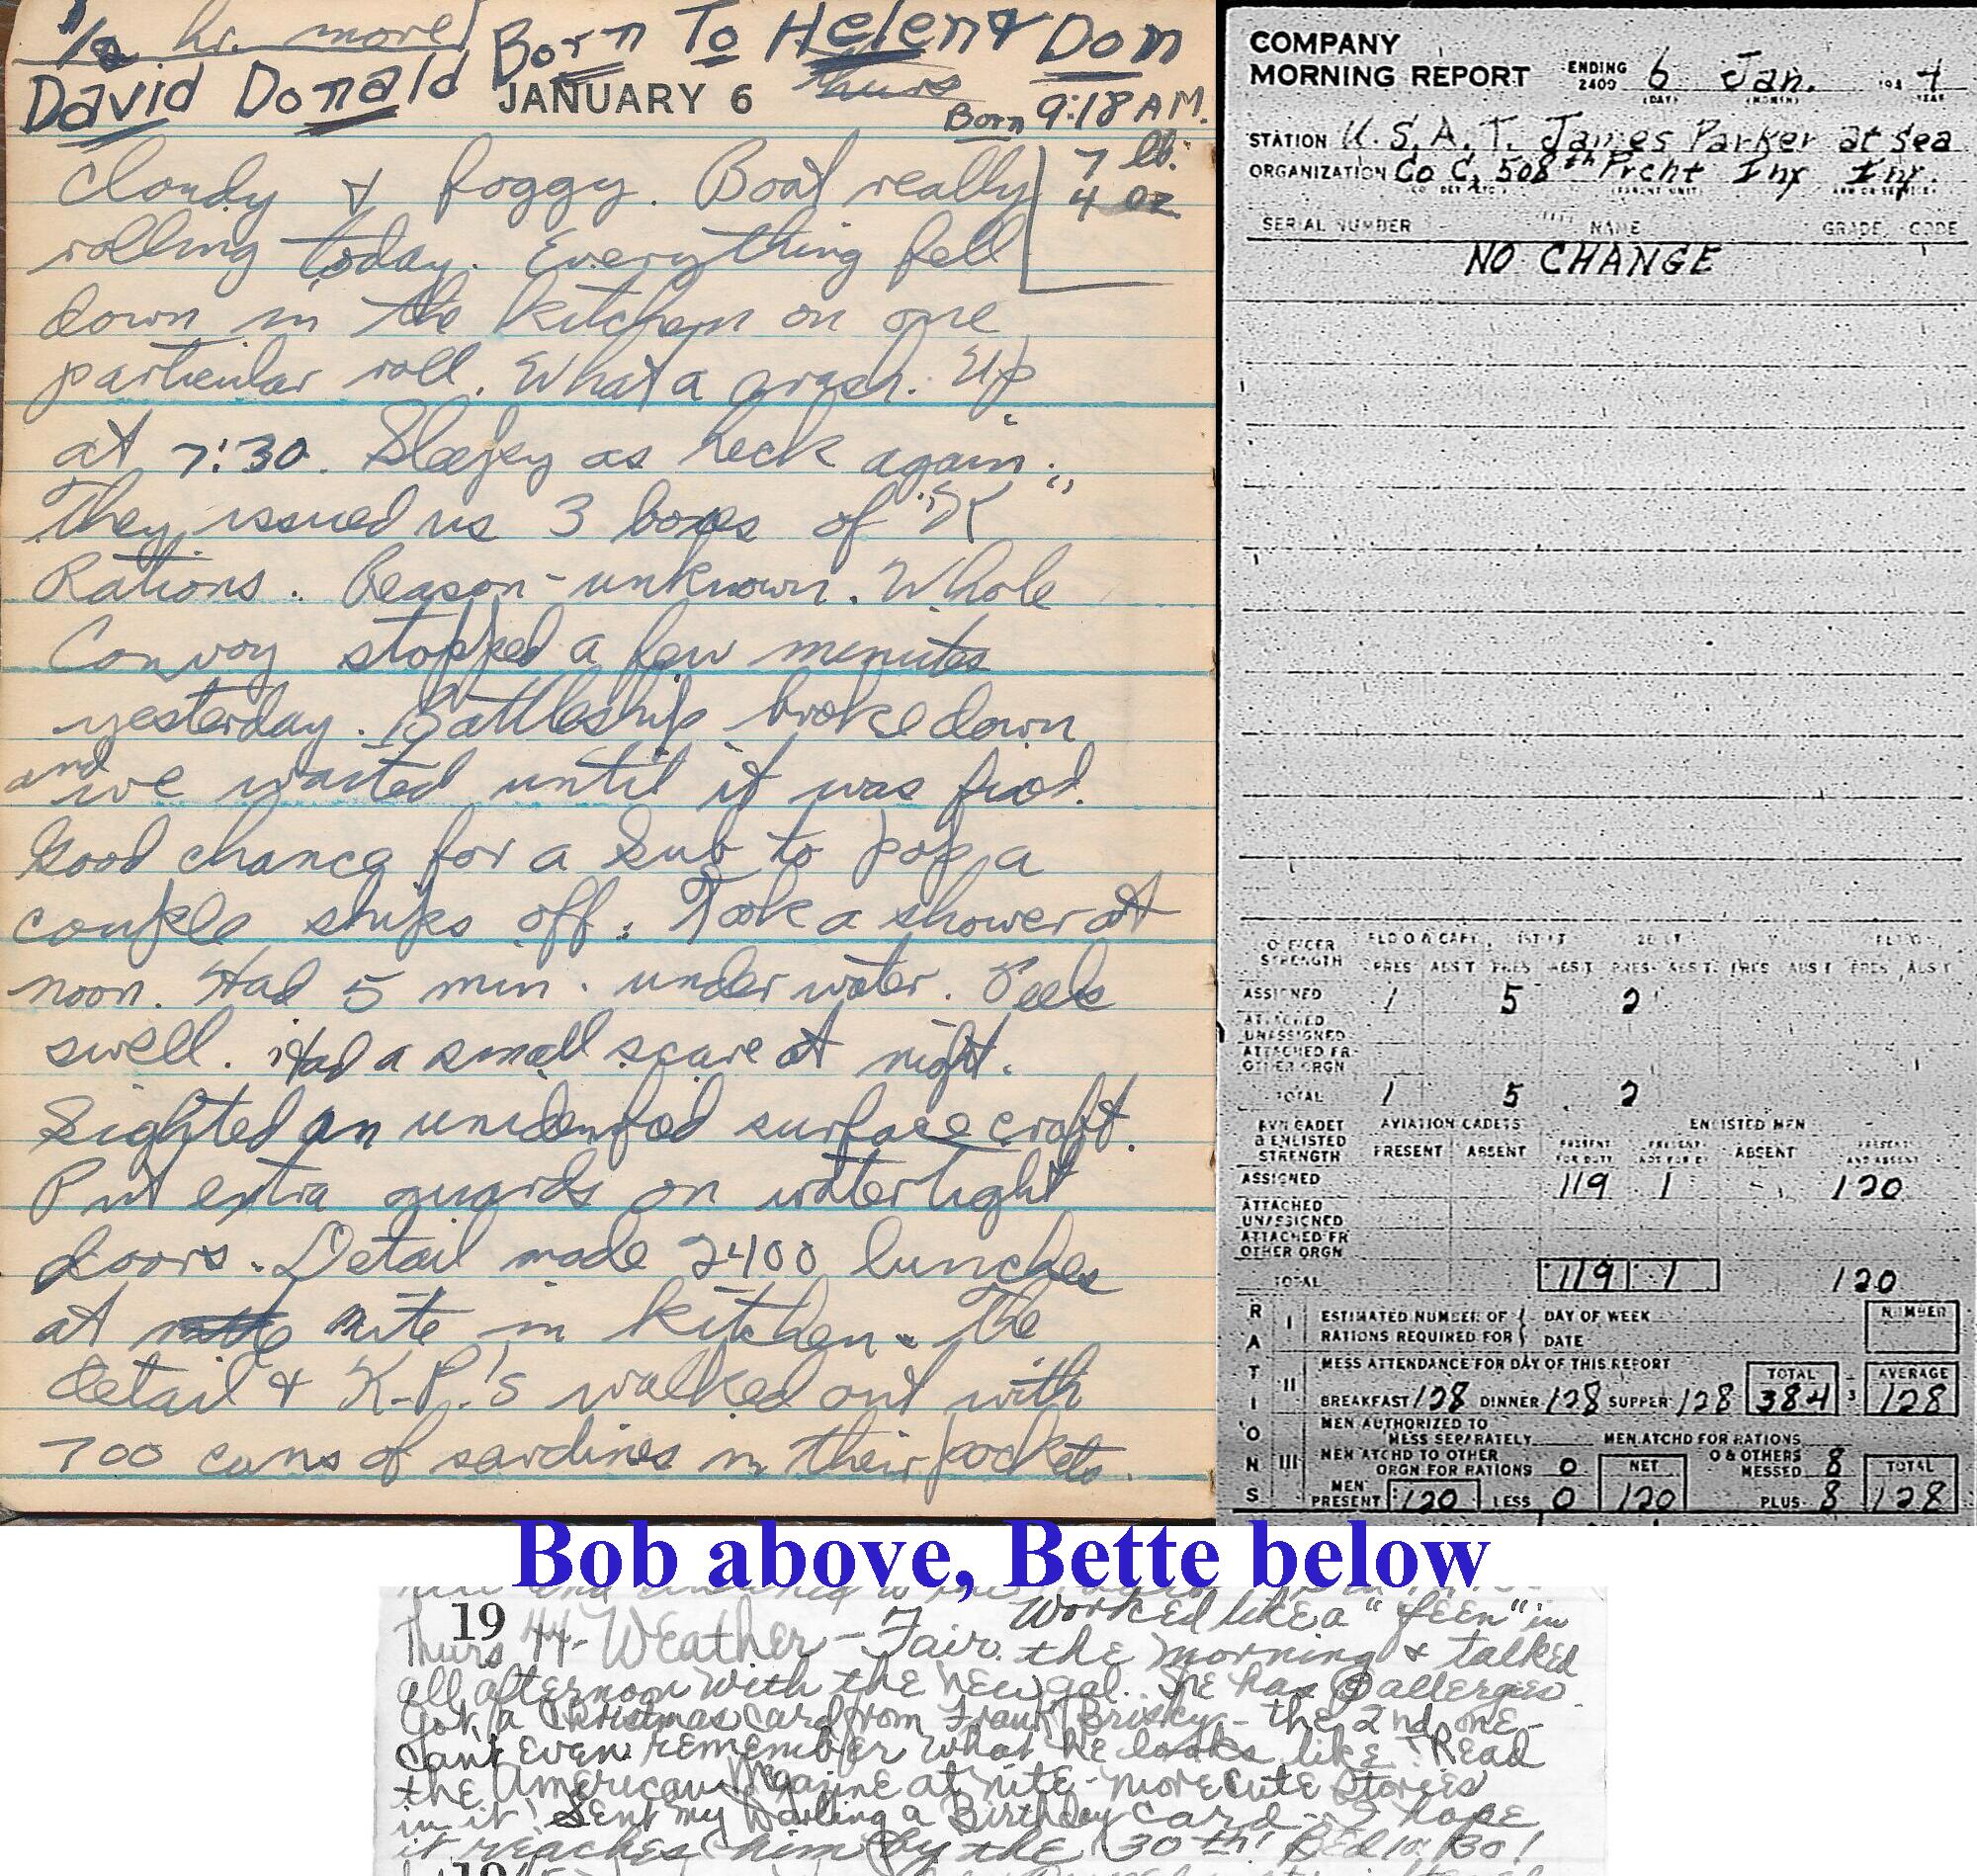 1/2 hr. more
Born To Helen & Don
David Donald
JANUARY 6
thurs
Born 9:18 A.M.
7 lb.
4 oz
Cloudy & foggy. Boat really
rolling today. Everything fell
down in the kitchen on one
particular roll. What a crash. Up
at 7:30. Sleepy as heck again.
They issued us 3 boxes of "K"
Rations. Reason - unknown. Whole
Convoy stopped a few minutes
yesterday. Battleship broke down
and we waited until it was fixed.
Good chance for a sub to pop a
couple ships off. Took a shower at
noon. Had 5 min. under water. Feels
swell. Had a small scare at night.
Sighted an unidentfed surface craft.
Put extra guards on watertight
doors. Detail made 2400 lunches
at nite in kitchen. The
detail & K-P.'s walked out with
700 cans of sardines in their pockets.
COMPANY
MORNING REPORT ENDING 2400 6 Jan. 194 4
(DAY) (MONTH) YEAR
STATION U.S.A.T. James Parker at Sea
ORGANIZATION Co C, 508th Prcht Inf Inf.
SERIAL NUMBER NAME GRADE CODE
NO CHANGE
OFFICER STRENGTH
PRES ABST PRES ABST PRES ABST PRES ABST PRES ABST
ASSIGNED 1 5 2
ATTACHED UNASSIGNED
ATTACHED FR OTHER ORGN
TOTAL 1 5 2
AVN CADET & ENLISTED STRENGTH AVIATION CADETS ENLISTED MEN
PRESENT ABSENT PRESENT FOR DUTY PRESENT NOT FOR DY ABSENT PRESENT AND ABSENT
ASSIGNED 119 1 120
ATTACHED UNASSIGNED
ATTACHED FR OTHER ORGN
TOTAL 119 1 120
RATIONS
I ESTIMATED NUMBER OF RATIONS REQUIRED FOR DAY OF WEEK DATE NUMBER
II MESS ATTENDANCE FOR DAY OF THIS REPORT TOTAL AVERAGE
BREAKFAST 128 DINNER 128 SUPPER 128 384 3 128
MEN AUTHORIZED TO MESS SEPARATELY MEN ATCHD FOR RATIONS
III MEN ATCHD TO OTHER ORGN FOR RATIONS 0 NET O & OTHERS MESSED 8 TOTAL
MEN PRESENT 120 LESS 0 120 PLUS 8 128
Bob above, Bette below
19 Worked like a "feen" in
Thurs 44 - Weather - Fair. the morning & talked
all afternoon with the new gal. She has allergies.
Got a Christmas card from Frank Brisky - the 2nd one -
can't even remember what he looks like! Read
the American Magazine at nite - more cute stories
in it! Sent my Darling a Birthday card - I hope
it reaches him by the 30th! Bed 10:30!